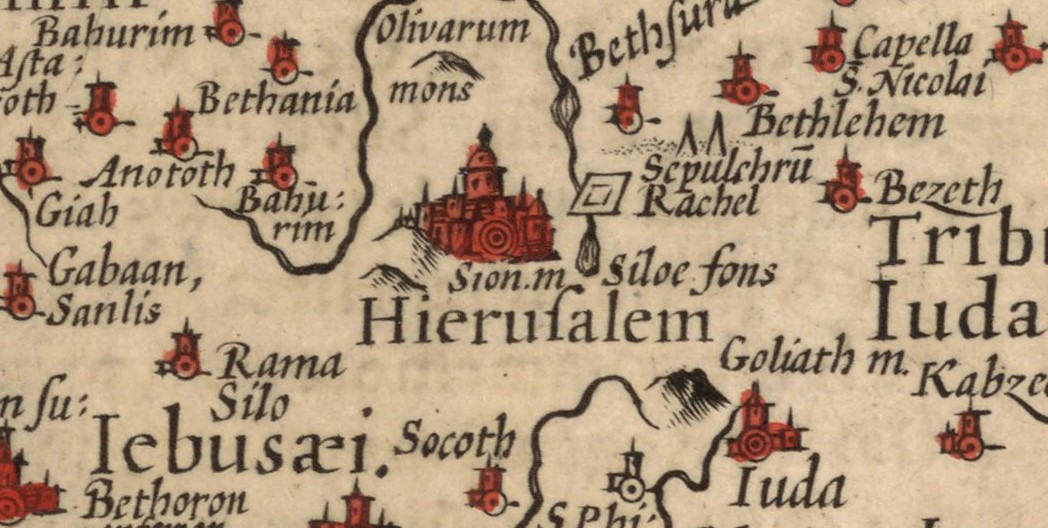 Bahurim
Olivarum
mons
Bethsura
Capella
S. Nicolai
Asta:
oth
Bethania
Bethlehem
Anototh
Bahu:
rim
Sepulchrū
Rachel
Bezeth
Giah
Gabaan,
Sanlis
Sion.m.
Siloe fons
Tribu
Iuda
Hierusalem
Rama
Silo
Goliath m.
Kabze
n su:
Iebusæi.
Socoth
Iuda
Bethoron
S Phi: